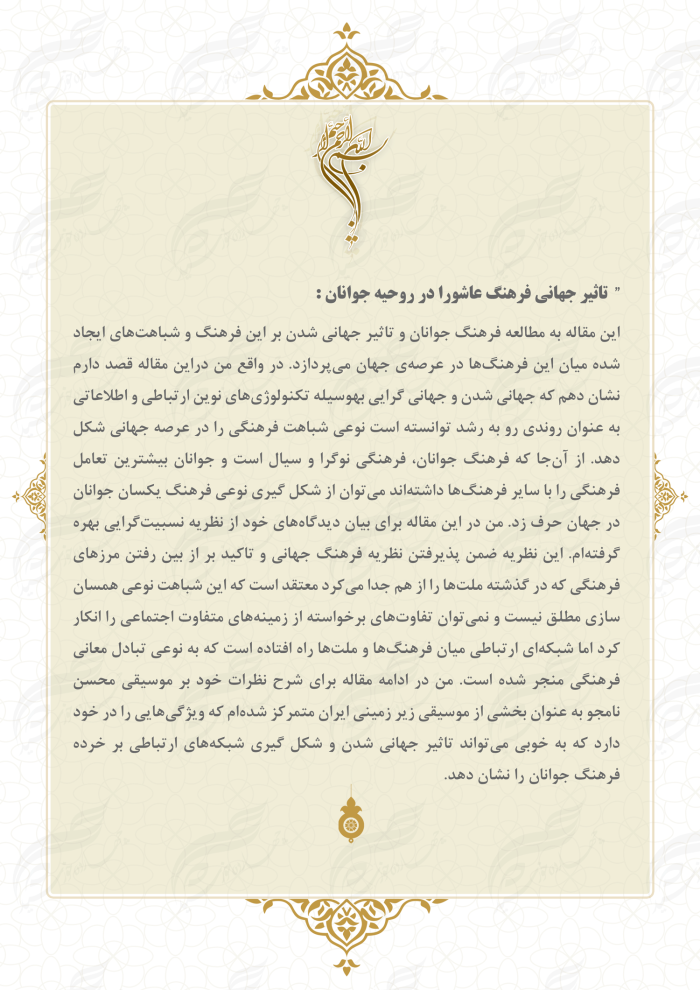 بسم الله الرحمن الرحیم
" تاثیر جهانی فرهنگ عاشورا در روحیه جوانان :
این مقاله به مطالعه فرهنگ جوانان و تاثیر جهانی شدن بر این فرهنگ و شباهت‌های ایجاد
شده میان این فرهنگ‌ها در عرصه‌ی جهان می‌پردازد. در واقع من دراین مقاله قصد دارم
نشان دهم که جهانی شدن و جهانی گرایی بهوسیله تکنولوژی‌های نوین ارتباطی و اطلاعاتی
به عنوان روندی رو به رشد توانسته است نوعی شباهت فرهنگی را در عرصه جهانی شکل
دهد. از آن‌جا که فرهنگ جوانان، فرهنگی نوگرا و سیال است و جوانان بیشترین تعامل
فرهنگی را با سایر فرهنگ‌ها داشته‌اند می‌توان از شکل گیری نوعی فرهنگ یکسان جوانان
در جهان حرف زد. من در این مقاله برای بیان دیدگاه‌های خود از نظریه نسبیت‌گرایی بهره
گرفته‌ام. این نظریه ضمن پذیرفتن نظریه فرهنگ جهانی و تاکید بر از بین رفتن مرزهای
فرهنگی که در گذشته ملت‌ها را از هم جدا می‌کرد معتقد است که این شباهت نوعی همسان
سازی مطلق نیست و نمی‌توان تفاوت‌های برخواسته از زمینه‌های متفاوت اجتماعی را انکار
کرد اما شبکه‌ای ارتباطی میان فرهنگ‌ها و ملت‌ها راه افتاده است که به نوعی تبادل معانی
فرهنگی منجر شده است. من در ادامه مقاله برای شرح نظرات خود بر موسیقی محسن
نامجو به عنوان بخشی از موسیقی زیر زمینی ایران متمرکز شده‌ام که ویژگی‌هایی را در خود
دارد که به خوبی می‌تواند تاثیر جهانی شدن و شکل گیری شبکه‌های ارتباطی بر خرده
فرهنگ جوانان را نشان دهد.